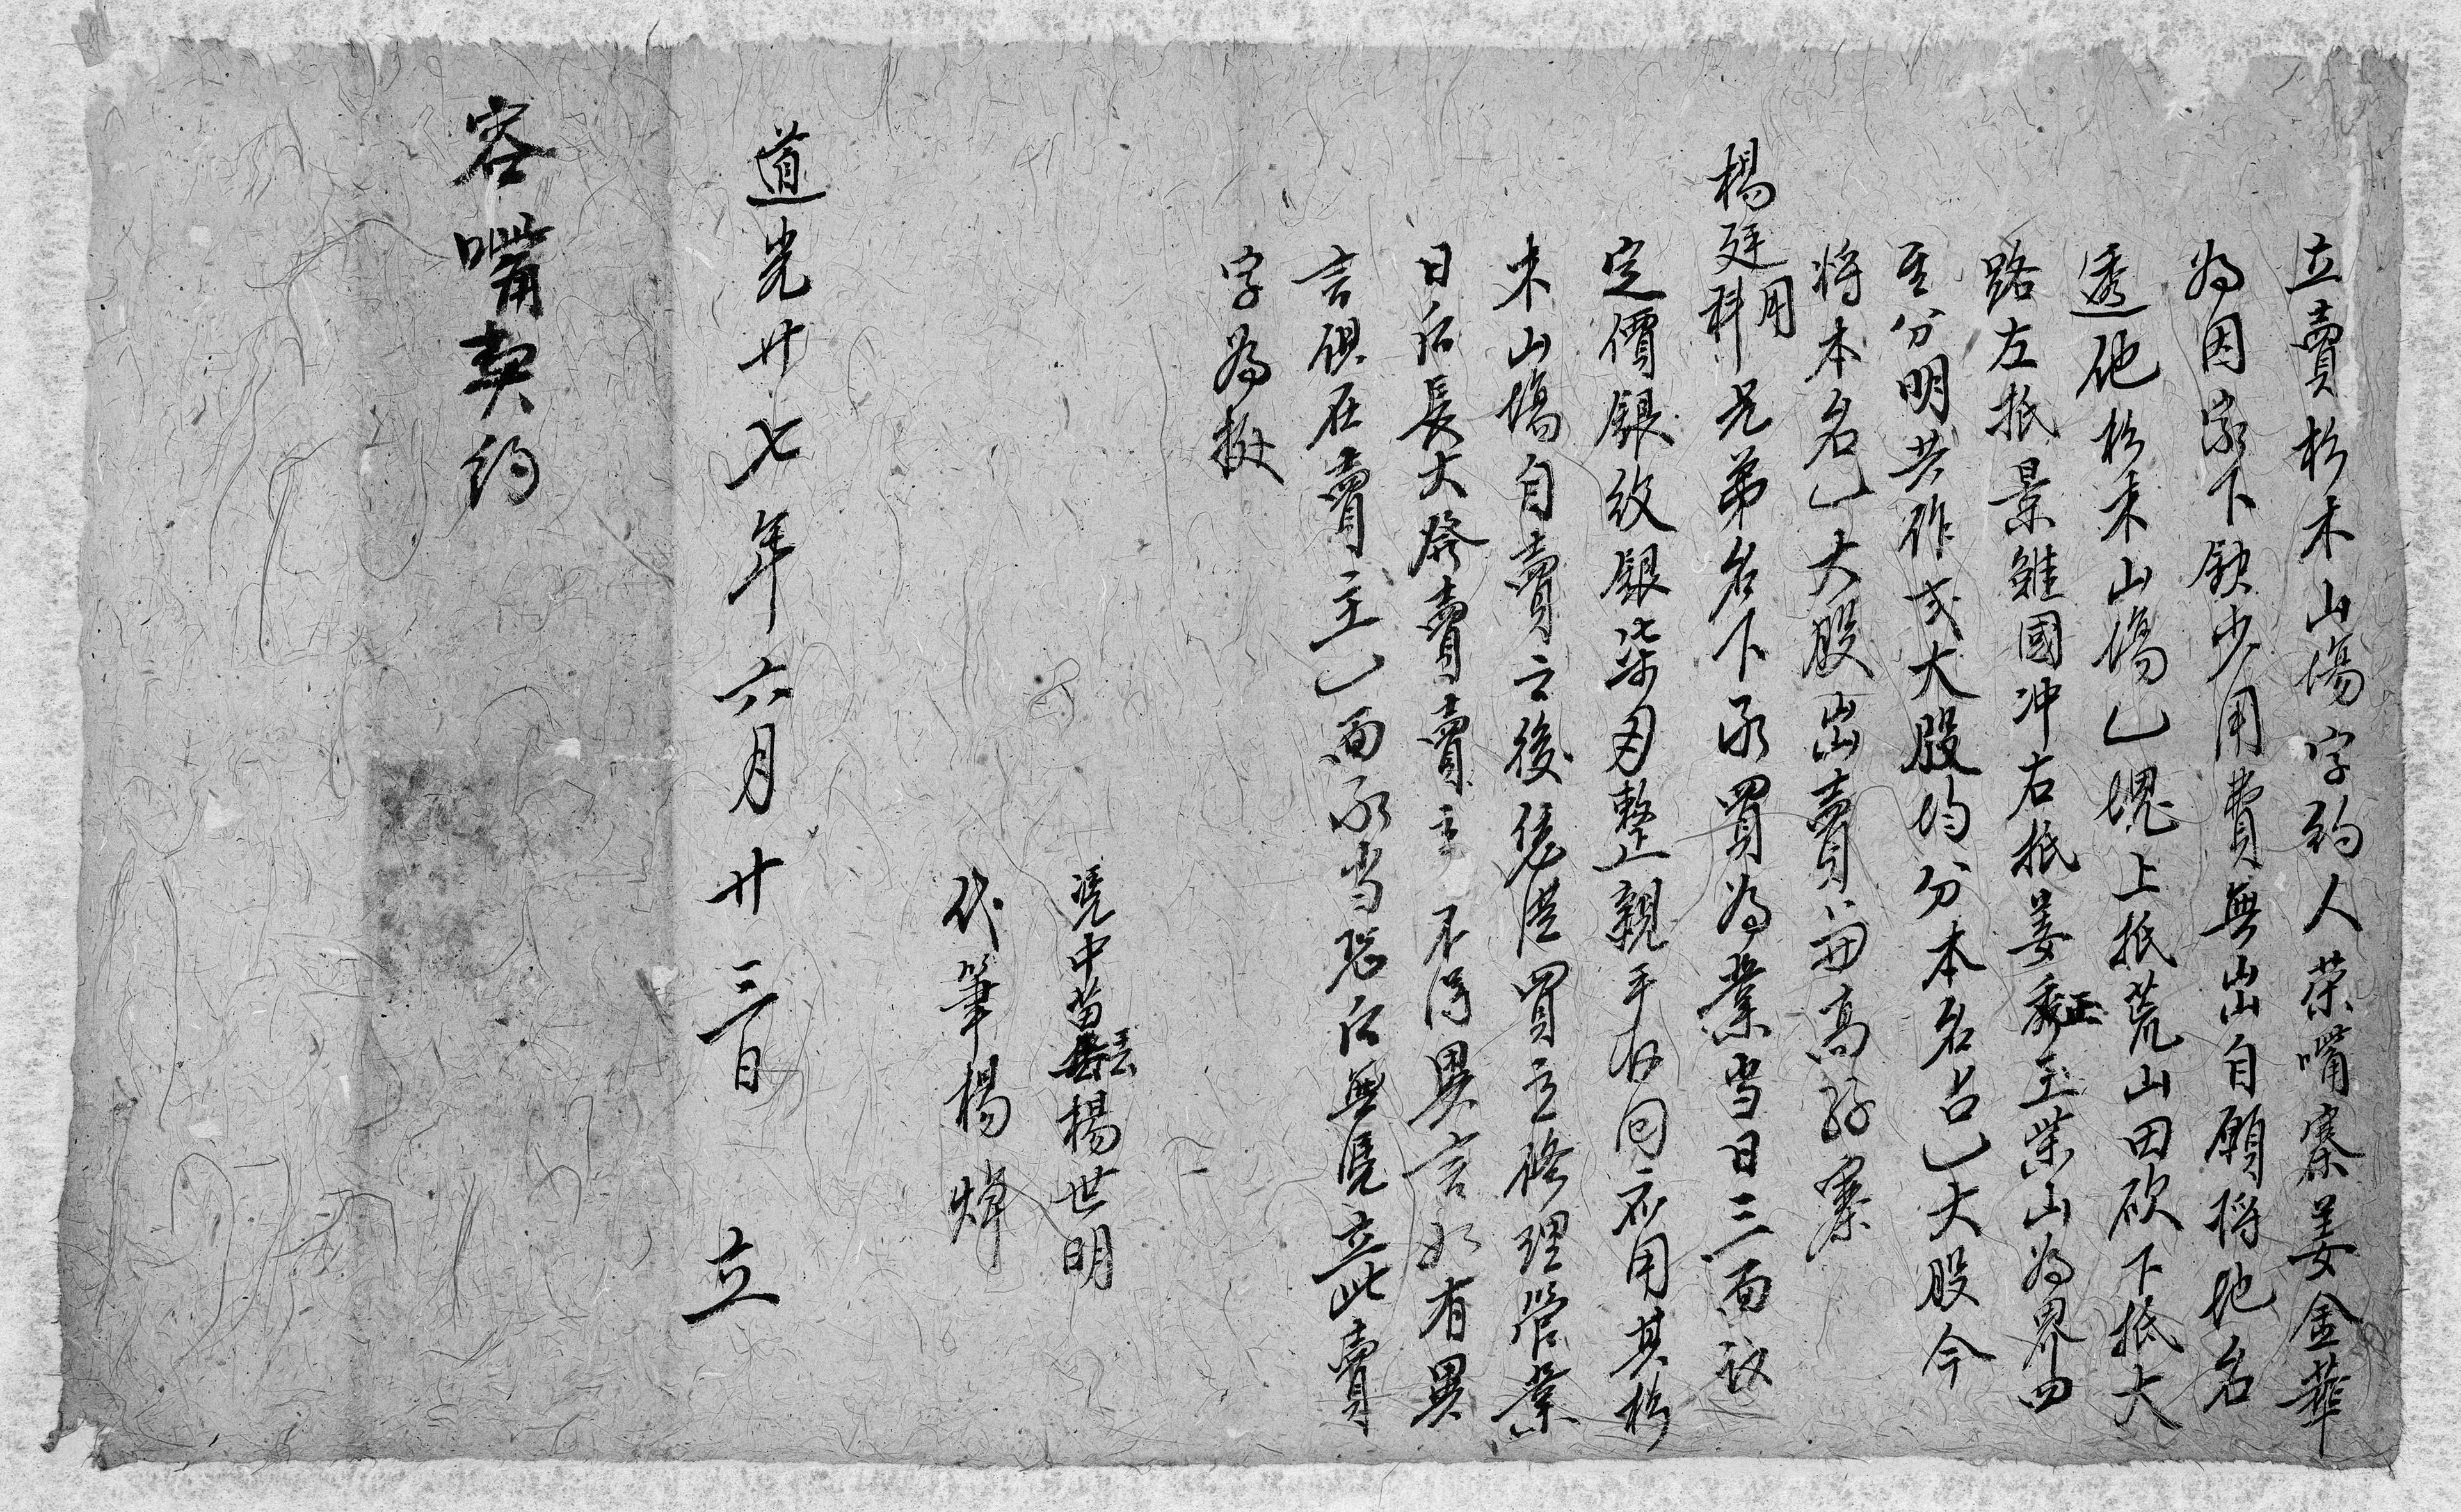 立賣杉木山塲字約人荣嘴寨姜金華
為因家下缺少用費無出自願將地名
透他杉木山塲乙塊上抵荒山田砍下抵大
路左抵景雖國冲右抵姜秉正主柴山為界四
至分明共作弍大股均分本名占乙大股今
將本名乙大股出賣 高 寨
楊廷科用兄弟名下承買為業当日三面议
定價銀纹銀柒两整親手收回应用其杉
木山塲自賣之後凭從買主修理管業
日后長大發賣賣主不得異言如有異
言俱在賣主乙面承当恐后無凭立此賣
字為據
凭中苗 楊世明
代筆楊焯
道光廿七年六月廿三日 立
容嘴契约